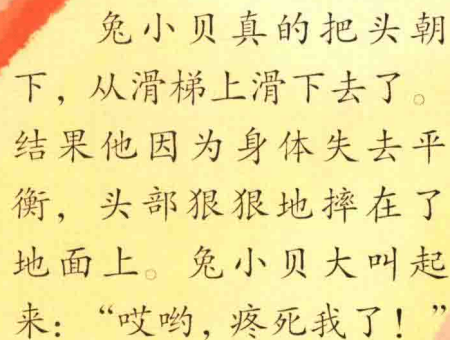 兔小贝真的把头朝
下，从滑梯上滑下去了。
结果他因为身体失去平
衡，头部狠狠地摔在了
地面上。兔小贝大叫起
来：“哎哟，疼死我了！”